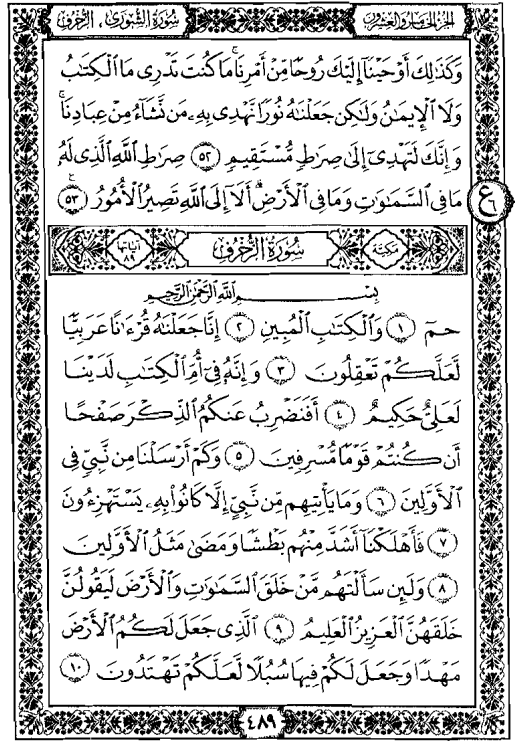 سُورَةُ الشُّورَى ، الزُّخْرُفِ
الجزء الخامس والعشرون
وَكَذَٰلِكَ أَوْحَيْنَآ إِلَيْكَ رُوحًا مِّنْ أَمْرِنَا ۚ مَا كُنتَ تَدْرِى مَا ٱلْكِتَٰبُ
وَلَا ٱلْإِيمَٰنُ وَلَٰكِن جَعَلْنَٰهُ نُورًا نَّهْدِى بِهِۦ مَن نَّشَآءُ مِنْ عِبَادِنَا ۚ
وَإِنَّكَ لَتَهْدِىٓ إِلَىٰ صِرَٰطٍ مُّسْتَقِيمٍ ٥٢ صِرَٰطِ ٱللَّهِ ٱلَّذِى لَهُۥ
مَا فِى ٱلسَّمَٰوَٰتِ وَمَا فِى ٱلْأَرْضِ ۗ أَلَآ إِلَى ٱللَّهِ تَصِيرُ ٱلْأُمُورُ ٥٣
ع ٦
مكية سُورَةُ الزُّخْرُفِ آياتها ٨٩
بِسْمِ ٱللَّهِ ٱلرَّحْمَٰنِ ٱلرَّحِيمِ
حمٓ ١ وَٱلْكِتَٰبِ ٱلْمُبِينِ ٢ إِنَّا جَعَلْنَٰهُ قُرْءَٰنًا عَرَبِيًّا
لَّعَلَّكُمْ تَعْقِلُونَ ٣ وَإِنَّهُۥ فِىٓ أُمِّ ٱلْكِتَٰبِ لَدَيْنَا
لَعَلِىٌّ حَكِيمٌ ٤ أَفَنَضْرِبُ عَنكُمُ ٱلذِّكْرَ صَفْحًا
أَن كُنتُمْ قَوْمًا مُّسْرِفِينَ ٥ وَكَمْ أَرْسَلْنَا مِن نَّبِىٍّ فِى
ٱلْأَوَّلِينَ ٦ وَمَا يَأْتِيهِم مِّن نَّبِىٍّ إِلَّا كَانُوا۟ بِهِۦ يَسْتَهْزِءُونَ
٧ فَأَهْلَكْنَآ أَشَدَّ مِنْهُم بَطْشًا وَمَضَىٰ مَثَلُ ٱلْأَوَّلِينَ
٨ وَلَئِن سَأَلْتَهُم مَّنْ خَلَقَ ٱلسَّمَٰوَٰتِ وَٱلْأَرْضَ لَيَقُولُنَّ
خَلَقَهُنَّ ٱلْعَزِيزُ ٱلْعَلِيمُ ٩ ٱلَّذِى جَعَلَ لَكُمُ ٱلْأَرْضَ
مَهْدًا وَجَعَلَ لَكُمْ فِيهَا سُبُلًا لَّعَلَّكُمْ تَهْتَدُونَ ١٠
٤٨٩